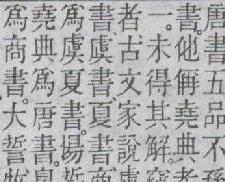 唐書五品不
書。他偁堯典
一。未得其解。
者古文家說
書、虞書、夏書、
爲虞夏書。湯誓
堯典爲唐書。
爲商書。大誓